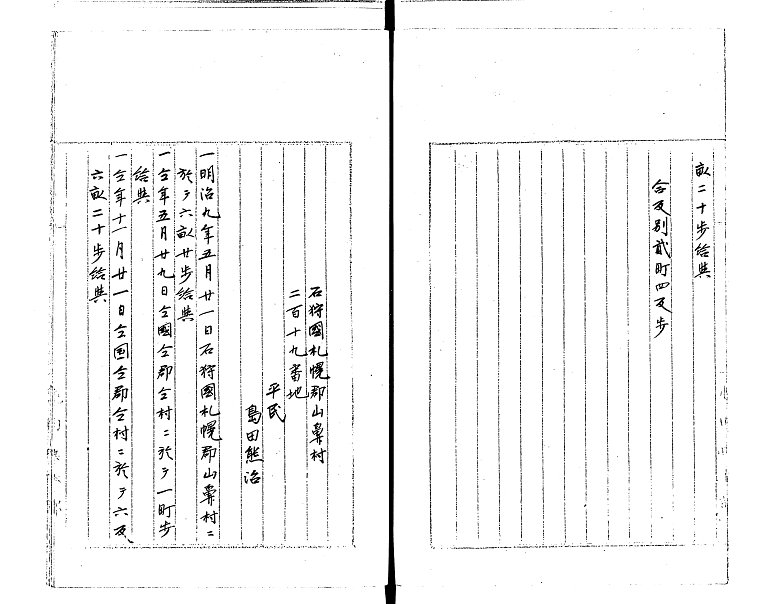 畝二十歩給與
合反別貳町四反歩
石狩國札幌郡山鼻村
二百十九番地
平民
島田熊治
一明治九年五月廿一日石狩國札幌郡山鼻村ニ
於テ六畝廿歩給與
一仝年五月廿九日仝國仝郡仝村ニ於テ一町歩
給與
一仝年十一月廿一日仝国仝郡仝村ニ於テ六反
六畝二十歩給與